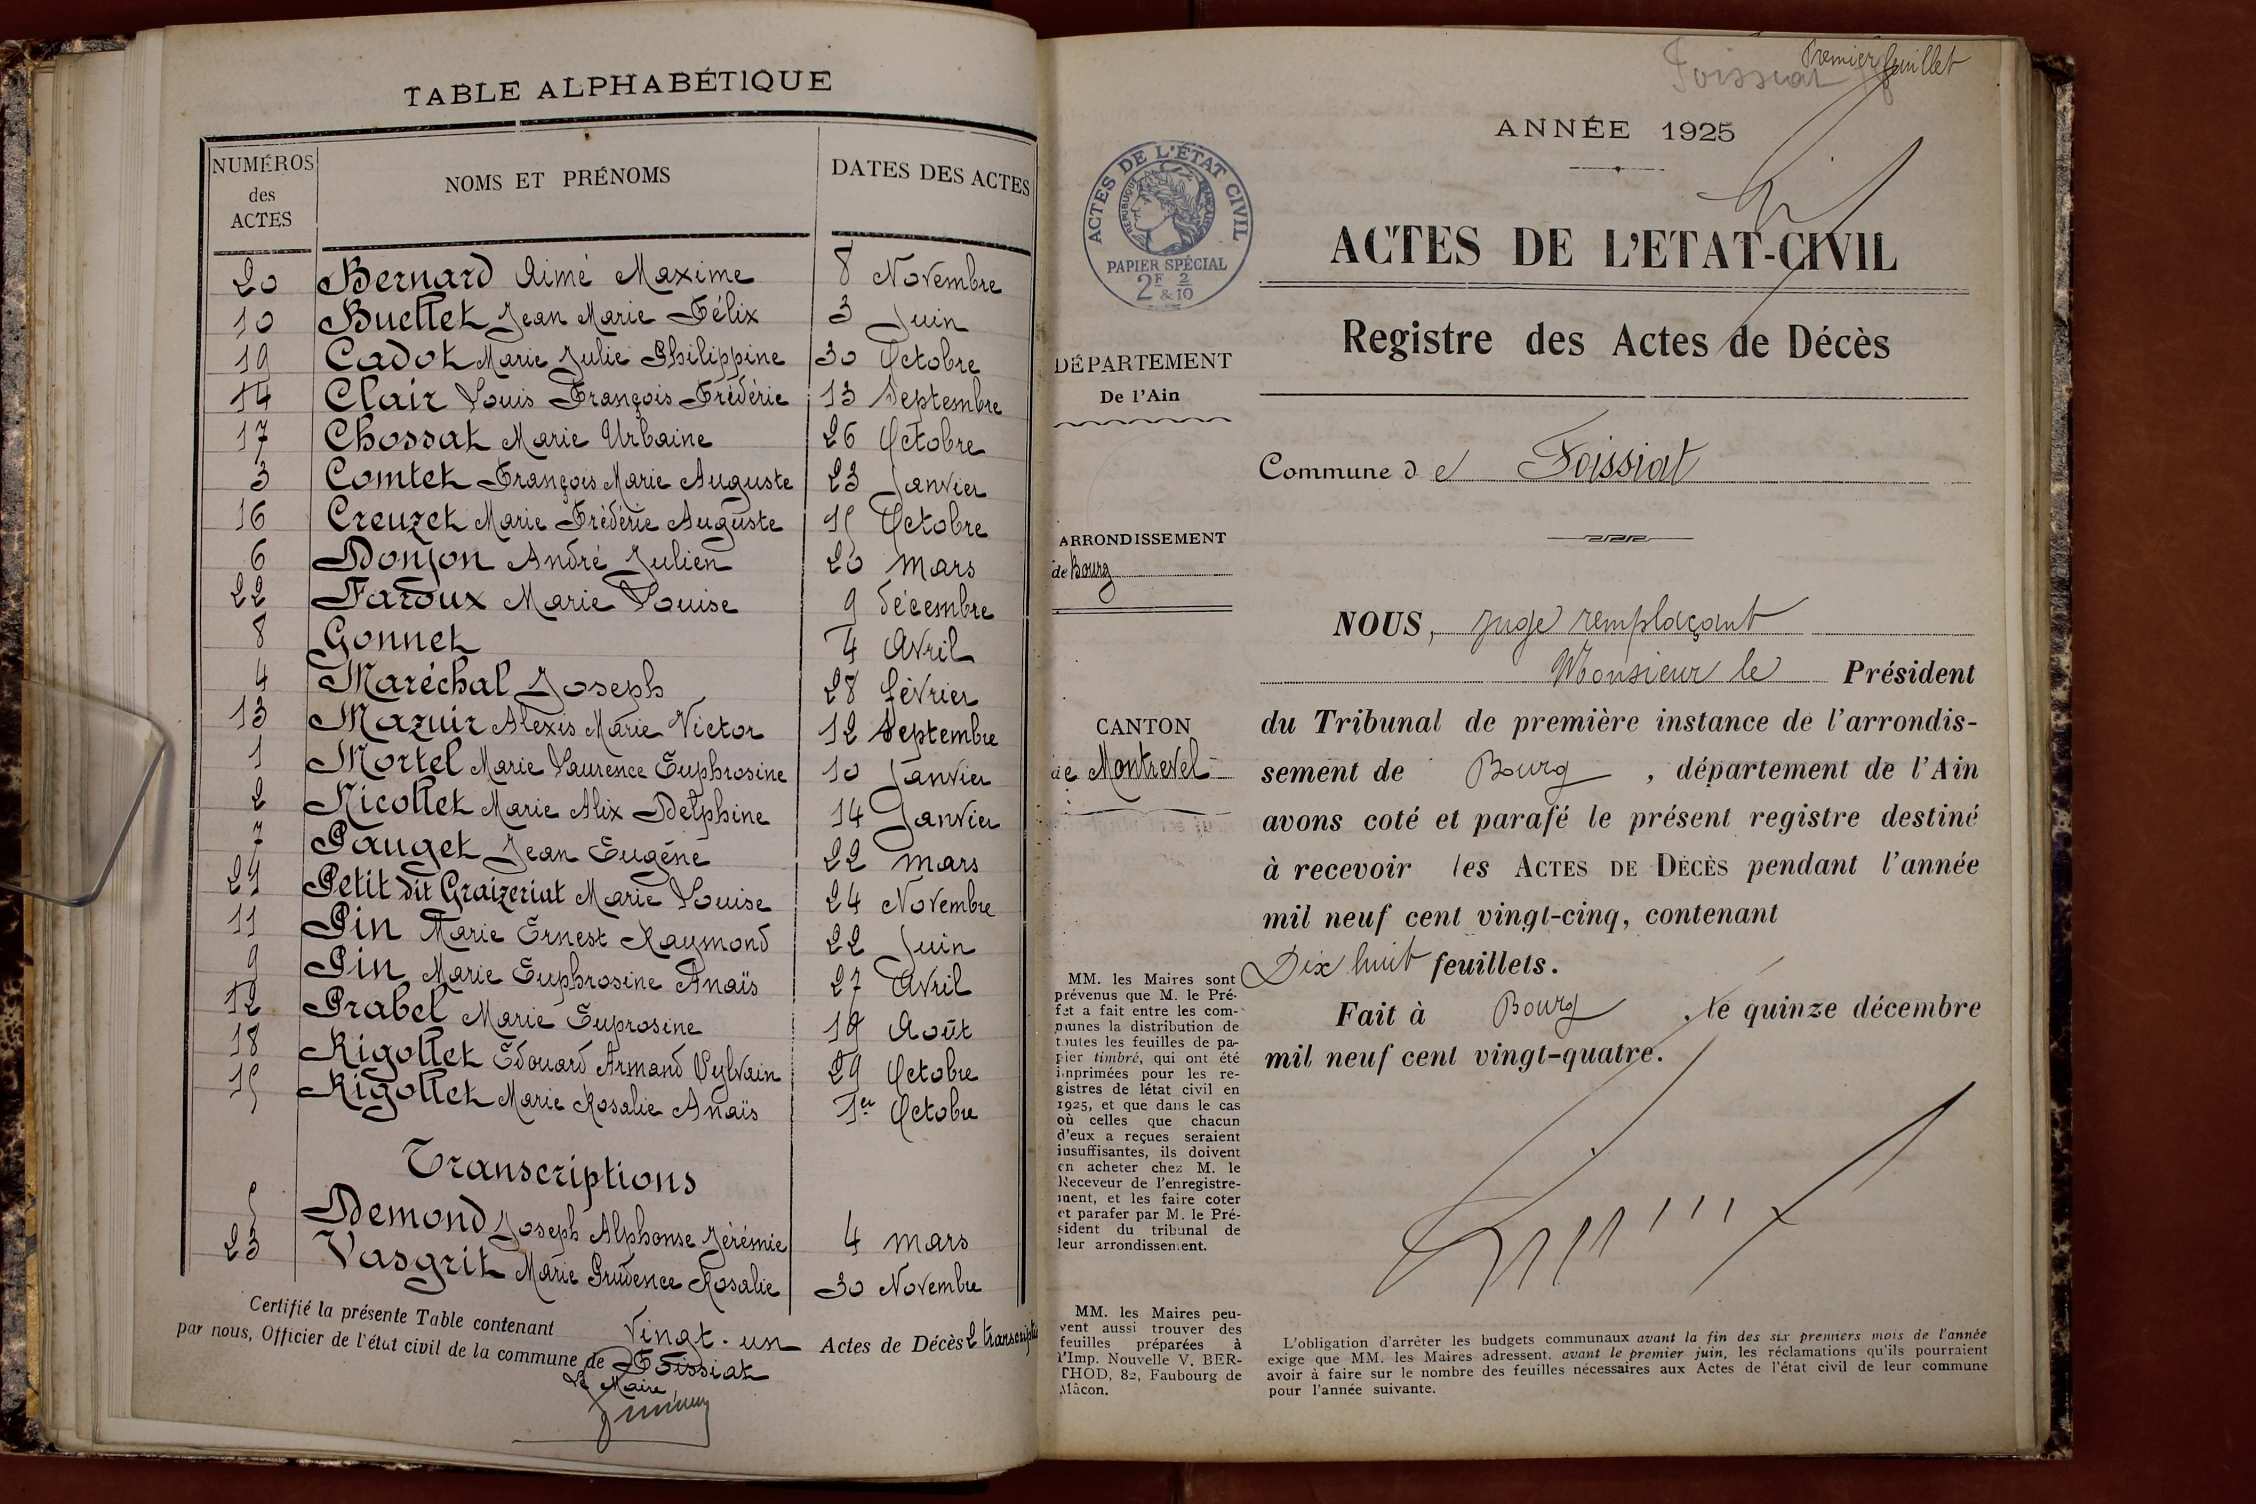 TABLE ALPHABÉTIQUE
NUMÉROS des ACTES NOMS ET PRÉNOMS DATES DES ACTES
20 Bernard Aimé Maxime 8 Novembre
10 Buellet Jean Marie Félix 3 Juin
19 Cadot Marie Julie Philippine 30 Octobre
14 Clair Louis François Frédéric 13 Septembre
17 Chossat Marie Urbaine 26 Octobre
3 Comtet François Marie Auguste 23 Janvier
16 Creuzet Marie Frédérie Auguste 15 Octobre
6 Donjon André Julien 20 mars
22 Faroux Marie Louise 9 décembre
8 Gonnet 4 Avril
4 Maréchal Joseph 28 février
13 Mazuir Alexis Marie Victor 12 Septembre
1 Mortel Marie Laurence Euphrosine 10 Janvier
2 Nicollet Marie Alix Delphine 14 Janvier
7 Pauget Jean Eugène 22 mars
21 Petit dit Graizeriat Marie Louise 24 Novembre
11 Pin Marie Ernest Raymond 22 Juin
9 Pin Marie Euphrosine Anaïs 27 Avril
12 Prabel Marie Euprosine 19 Août
18 Rigollet Edouard Armand Sylvain 29 Octobre
15 Rigollet Marie Rosalie Anaïs 1er Octobre
Transcriptions
5 Demond Joseph Alphonse Jérémie 4 mars
23 Vasgrit Marie Prudence Rosalie 30 Novembre
Certifié la présente Table contenant Vingt-un Actes de Décès 2 transcripti
par nous, Officier de l'état civil de la commune de Foissiat
Le Maire,
Premier feuillet
Foissiat
ANNÉE 1925
ACTES DE L'ÉTAT CIVIL
RÉPUBLIQUE FRANÇAISE
PAPIER SPÉCIAL
2F & 2/10
ACTES DE L'ETAT-CIVIL
Registre des Actes de Décès
DÉPARTEMENT
De l'Ain
Commune de Foissiat
ARRONDISSEMENT
de Bourg
CANTON
de Montrevel
NOUS, juge remplaçant
Monsieur le Président
du Tribunal de première instance de l'arrondis-
sement de Bourg, département de l'Ain
avons coté et parafé le présent registre destiné
à recevoir les ACTES DE DÉCÈS pendant l'année
mil neuf cent vingt-cinq, contenant
Dix huit feuillets.
Fait à Bourg, le quinze décembre
mil neuf cent vingt-quatre.
MM. les Maires sont
prévenus que M. le Pré-
fet a fait entre les com-
munes la distribution de
toutes les feuilles de pa-
pier timbré, qui ont été
imprimées pour les re-
gistres de létat civil en
1925, et que dans le cas
où celles que chacun
d'eux a reçues seraient
insuffisantes, ils doivent
en acheter chez M. le
Receveur de l'enregistre-
ment, et les faire coter
et parafer par M. le Pré-
sident du tribunal de
leur arrondissement.
MM. les Maires peu-
vent aussi trouver des
feuilles préparées à
l'Imp. Nouvelle V. BER-
THOD, 82, Faubourg de
Mâcon.
L'obligation d'arrêter les budgets communaux avant la fin des six premiers mois de l'année
exige que MM. les Maires adressent. avant le premier juin, les réclamations qu'ils pourraient
avoir à faire sur le nombre des feuilles nécessaires aux Actes de l'état civil de leur commune
pour l'année suivante.